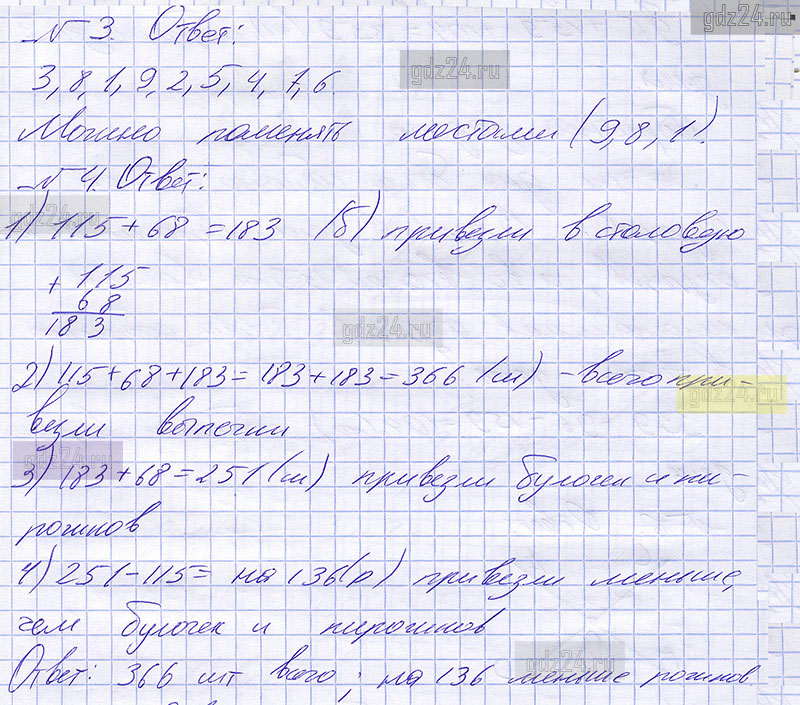 gdz24.ru
№ 3. Ответ:
gdz24.ru
3, 8, 1, 9, 2, 5, 4, 7, 6.
Можно поменять местами (9, 8, 1).
№ 4. Ответ:
gdz24.ru
1) 115 + 68 = 183 (б) привезли в столовую
+ 115
68
183
gdz24.ru
2) 115 + 68 + 183 = 183 + 183 = 366 (ш) - всего при-
gdz24.ru
везли выпечки
gdz24.ru
3) 183 + 68 = 251 (ш) привезли булочек и пи-
рожков
4) 251 - 115 = на 136 (р) привезли меньше,
чем булочек и пирожков
gdz24.ru
Ответ: 366 шт всего; на 136 меньше рожков